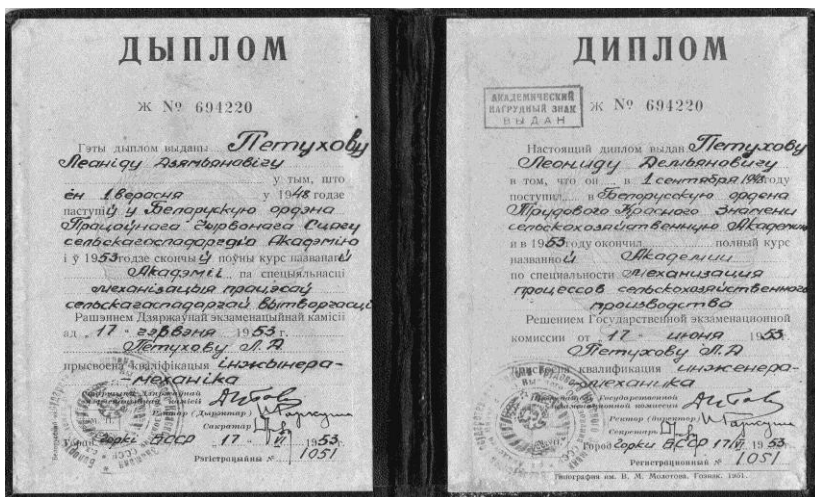 ДЫПЛОМ
Ж № 694220
Гэты дыплом выданы Петухову
Леаніду Дзям'янавічу
у тым, што
ён 1 верасня у 1948 годзе
паступіў у Беларускую ордэна
Працоўнага Чырвонага Сцягу
сельскагаспадарчую Акадэмію
і ў 1953 годзе скончыў поўны курс названай
Акадэміі па спецыяльнасці
механізацыя працэсаў
сельскагаспадарчай вытворчасці
Рашэннем Дзяржаўнай экзаменацыйнай камісіі
ад 17 чэрвеня 1953 г.
Петухову Л.Д
прысвоена кваліфікацыя інжынера-
механіка
Старшыня Дзяржаўнай
экзаменацыйнай камісіі
Рэктар (Дырэктар)
Сакратар
Горад Горки БССР 17 VI 1953
Рэгістрацыйны № 1051
ДИПЛОМ
АКАДЕМИЧЕСКИЙ
НАГРУДНЫЙ ЗНАК
ВЫДАН
Ж № 694220
Настоящий диплом выдан Петухову
Леониду Демьяновичу
в том, что он в 1 сентября 1948 году
поступил в Белорусскую ордена
Трудового Красного Знамени
сельскохозяйственную Академию
и в 1953 году окончил полный курс
названной Академии
по специальности механизация
процессов сельскохозяйственного
производства
Решением Государственной экзаменационной
комиссии от 17 июня 1953
Петухову Л.Д
присвоена квалификация инженера-
механика
Председатель Государственной
экзаменационной комиссии
Ректор (директор)
Секретарь
Город Горки БССР 17/VI 1953
Регистрационный № 1051
Типография им. В. М. Молотова. Гознак. 1951.